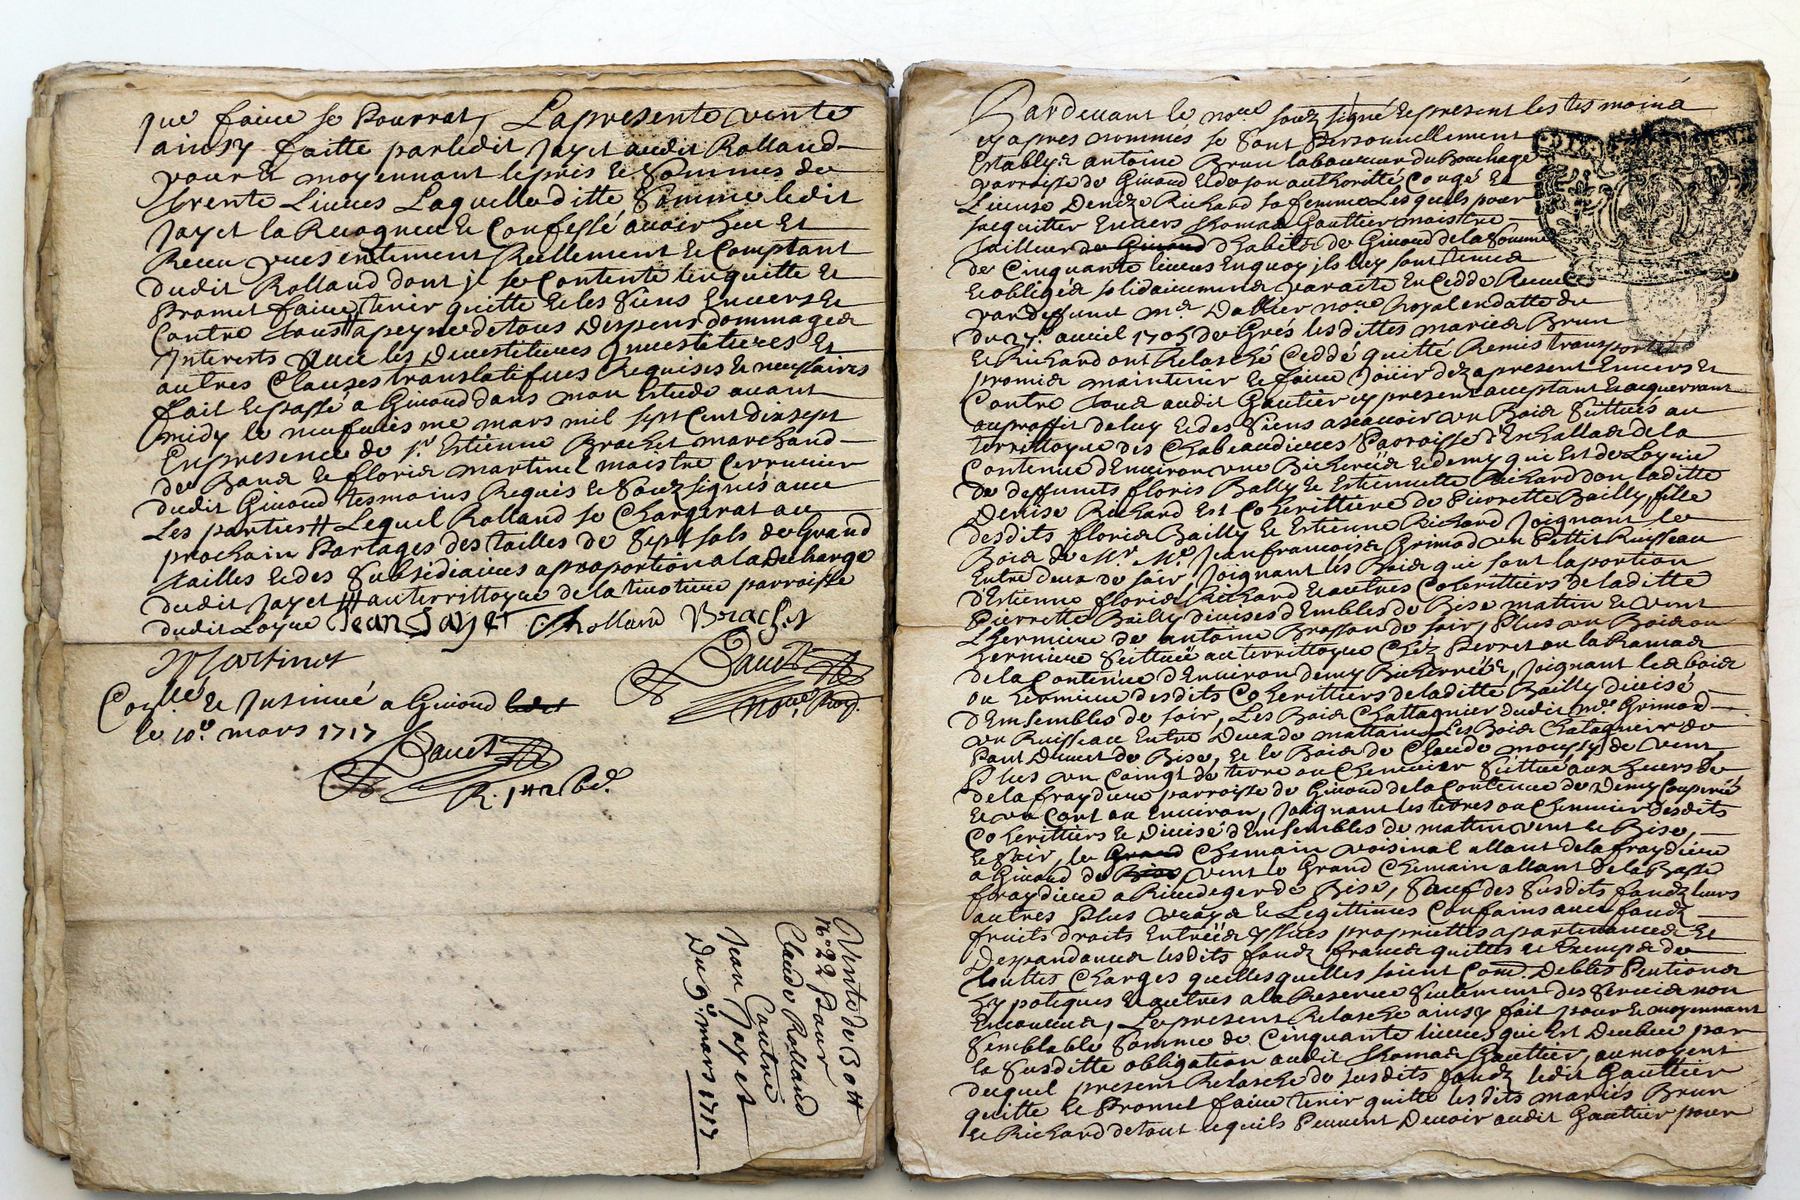 que faire se Pourrat, La presente vente
ainsy faitte par ledit Jayet audit Rolland
pour et moyennant le pris et Sommes de
trente Livres Laquelle ditte Somme ledit
Jayet la Recogneu et Confessé avoir heu et
Receu Reellement et Comptant
dudit Rolland dont il se Contente l'en quitte et
Promet faire tenir quitte et les Siens Envers et
Contre tous a peyne de tous Despens dommages
Interests Avec les Devestitures Investitures et
autres Clauses translatifves Requises et necessaires
fait et passé a Givord dans mon Estude avant
midy le neufviesme mars mil sept Cent dix sept
En presence de Sr. Estienne Brachet marchand
de et floris martinet maistre Cerrurier
dudit Givord tesmoins Requis et Soubzsignés avec
Les parties # Lequel Rolland se Chargerat au
prochain Partages des tailles de Sept sols de Grand
tailles et des Subsidiaires a proportion a la Decharge
dudit Jayet # au territtoyre de parroisse
dudit Loyre Jean Jayet Rolland Brachet
Martinet
nore. Roy.
Con.llé et Insinué a Givord
le 10e. mars 1717
Vente de
no. 22 Pour
Claude Rolland
Contre
Jean Jayet
Du 9e. mars 1717
Pardevant le nore. soubzsigné et present les tesmoins
cy apres nommés se Sont Personnellement
Establys antoine Brun laboureur du Bouchage
parroisse de Givord et de son authoritté Congé et
Licence Denize Richard sa femme Lesquels pour
sacquitter Envers Thomas Gaultier maistre
tailleur de Givord d'habits de Givord de la Somme
de Cinquante livres En quoy ils luy sont tenus
et obligés solidairement par acte En Cedde Receue
par deffunt me. Dallier nore. Royal en datte du
du 27e. avril 1705 de Grés lesdittes mariés Brun
et Richard ont Relasché Ceddé quitté Remis transporté
promis maintenir et faire Jouir dez a present Envers et
Contre tous audit Gaultier cy present acceptant et acquerrant
au proffit de luy et des Siens a scavoir un Bois Sittués au
territtoyre des Chabeaudieres Parroisse d'Enhallas de la
Contenue d'Environ une Bicherée et demy qui Est de Loyrie
de deffunts floris Bally et Estiennette Richard don laditte
Denise Richard Est Coherittiere de Pierrette Bailly, fille
desdits floris Bailly et Estienne Richard Joignant le
Bois de Mr. Me. Jean francois Grimod un Petit Ruisseau
Entre deux de soir, Joignant les Bois qui sont la portion
d'Estienne floris Richard et autres Coherittiers de laditte
Pierrette Bailly divises d'Embles de Bise mattin et vent
L'hermiere de antoine Brossou de soir, Plus un Bois ou
hermiere Sittuée au territtoyre Chéz Perret ou la Ramas
de la Contenue d'Environ demy Bicherrée, Joignant les bois
ou hermiere desdits Coherittiers de laditte Bailly divisé
d'Ensembles de soir, Les Bois Chattagnier dudit me. Grimod
un Ruisseau Entre Deux de mattain, Les Bois Chatagnier de
de Bise, et le Bois de Claude moussy de vent
Plus un Coingt de terre ou Chenevier Sittué aux
de la fraydiere parroisse de Givord de la Contenue de Demy Couperée
et un Cart ou Environ, Joignant les terres ou Chennevier desdits
Coherittiers et Divisé d'Ensembles de mattin vent et Bise,
et soir, le Grand Chemain voisinal allant de la fraydiere
a Givord de Bise, vent le Grand Chemain allant de la Basse
fraydiere a Rivedeger de Bise, Sauf des Susdits fondz leurs
autres Plus vrays et Legittimes Confains avec fondz
fruits droits Entrées yssues proprietés apartenances et
Despandances lesdits fondz francs quittes et Exemps de
touttes Charges quelles quelles soient Com. Debtes Pentions
hypoteques et autres a la Reserve Seulement des Servis non
Encourus, Le present Relasche ainsy fait pour et moyennant
Semblable Somme de Cinquante livres qui Est Deubue par
la Susditte obligation audit Thomas Gaultier, au moyent
duquel present Relasche de susdits fondz ledit Gaultier
quitte et Promet faire tenir quitte lesdits mariés Brun
et Richard de tout ce quils Peuvent Devoir audit Gaultier pour